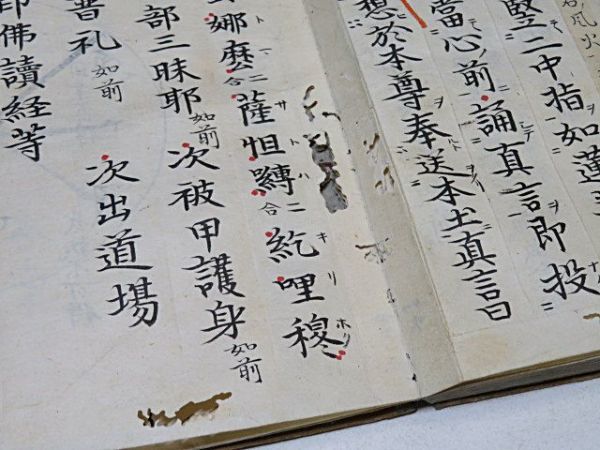 風火
竪二中指如蓮
當心前誦真言即投
想於本尊奉送本土真言曰
娜麼二合薩怛嚩二合紇哩穆
部三昧耶如前 次被甲護身如前
普礼如前 次出道場
印佛讀経等